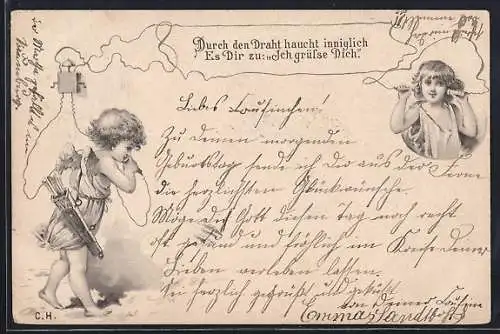 Durch den Draht haucht inniglich
Es Dir zu: „Ich grüße Dich."
Liebes Cousinchen!
Zu Deinem morgenden
Geburtstag sende ich Dir aus der Ferne
die herzlichsten Glückwünsche.
Möge der Gott diesen Tag noch recht
oft gesund und fröhlich im Kreise Deiner
Lieben verleben lassen.
Sei herzlich gegrüßt und geküßt
von Deiner Cousine
Emma
C.H.